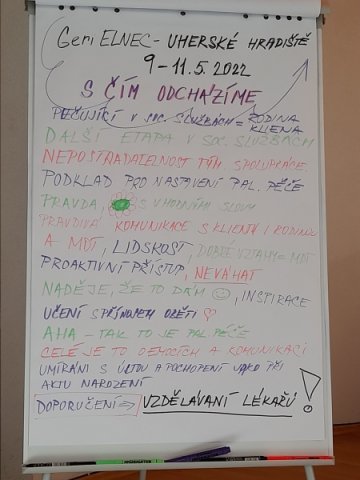 Geri ELNEC - UHERSKÉ HRADIŠTĚ
9-11.5.2022
S ČÍM ODCHÁZÍME
PEČUJÍCÍ V SOC. SLUŽBÁCH = RODINA
KLIENA
DALŠÍ ETAPA V SOC. SLUŽBÁCH
NEPOSTRADATELNOST TÝM. SPOLUPRÁCE.
PODKLAD PRO NASTAVENÍ PAL. PÉČE
PRAVDA, S VHODNÍM SLOVY
PRAVDIVÁ KOMUNIKACE S KLIENTY I RODINOU
A MDT, LIDSKOST, DOBRÉ VZTAHY = MDT
PROAKTIVNÍ PŘÍSTUP, NEVÁHAT
NADĚJE, ŽE TO DÁM, INSPIRACE
UČENÍ SPOJENO
AHA - TAK TO JE PAL. PÉČE
CELÉ JE TO O EMOCÍCH A KOMUNIKACI
UMÍRÁNI S ÚCTOU A POCHOPENÍ JAKO PŘI
AKTU NAROZENÍ
DOPORUČENÍ ⇒ VZDĚLAVANÍ LÉKAŘŮ !